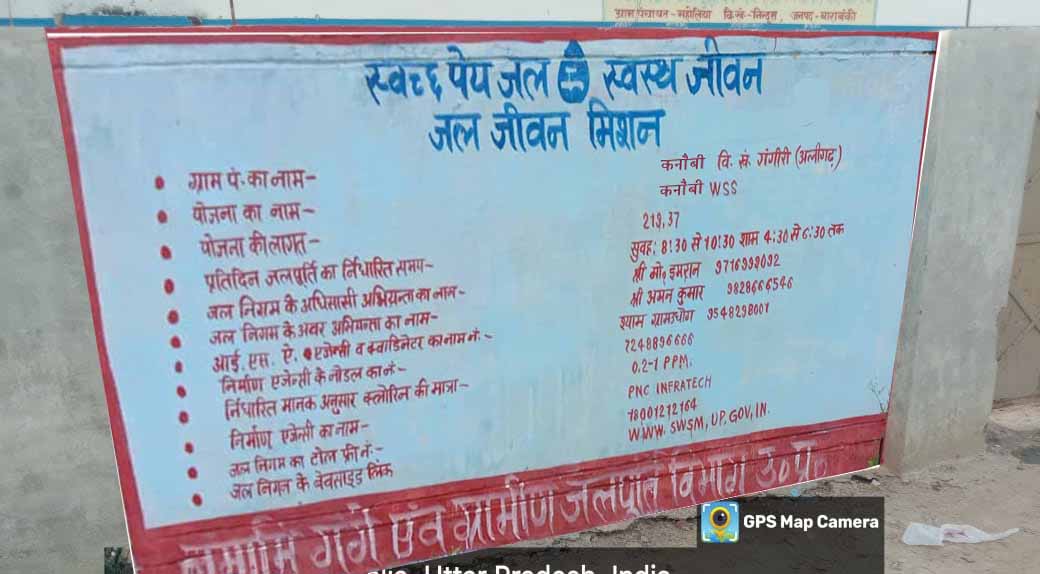 ग्राम पंचायत - महोलिया वि.खं.-निन्दूरा, जनपद-बाराबंकी
स्वच्छ पेय जल स्वस्थ जीवन
जल जीवन मिशन
ग्राम पं. का नाम- कनौबी वि. खं. गंगीरी (अलीगढ़)
योजना का नाम- कनौबी WSS
योजना की लागत- 219.37
प्रतिदिन जलपूर्ति का निर्धारित समय- सुवह: 8:30 से 10:30 शाम 4:30 से 6:30 तक
जल निगम के अधिसासी अभियन्ता का नाम- श्री मो० इमरान 9716999092
जल निगम के अवर अभियन्ता का नाम- श्री अमन कुमार 9828666546
आई. एस. ऐ. एजेन्सी व क्वाडिनेटर का नाम नं.:- श्याम ग्रामउधोग 9548298001
निर्माण एजेन्सी के नोडल का नं- 7248896666
निर्धारित मानक अनुसार क्लोरिन की मात्रा- 0.2-1 PPM.
निर्माण एजेन्सी का नाम- PNC INFRATECH
जल निगम का टोल फ्री नं:- 18001212164
जल निगम के वेवसाइड लिंक WWW. SWSM, UP. GOV, IN.
नमामि गंगे एंव ग्रामीण जलपूर्ति विभाग उ०प्र०
GPS Map Camera
Uttar Pradesh, India